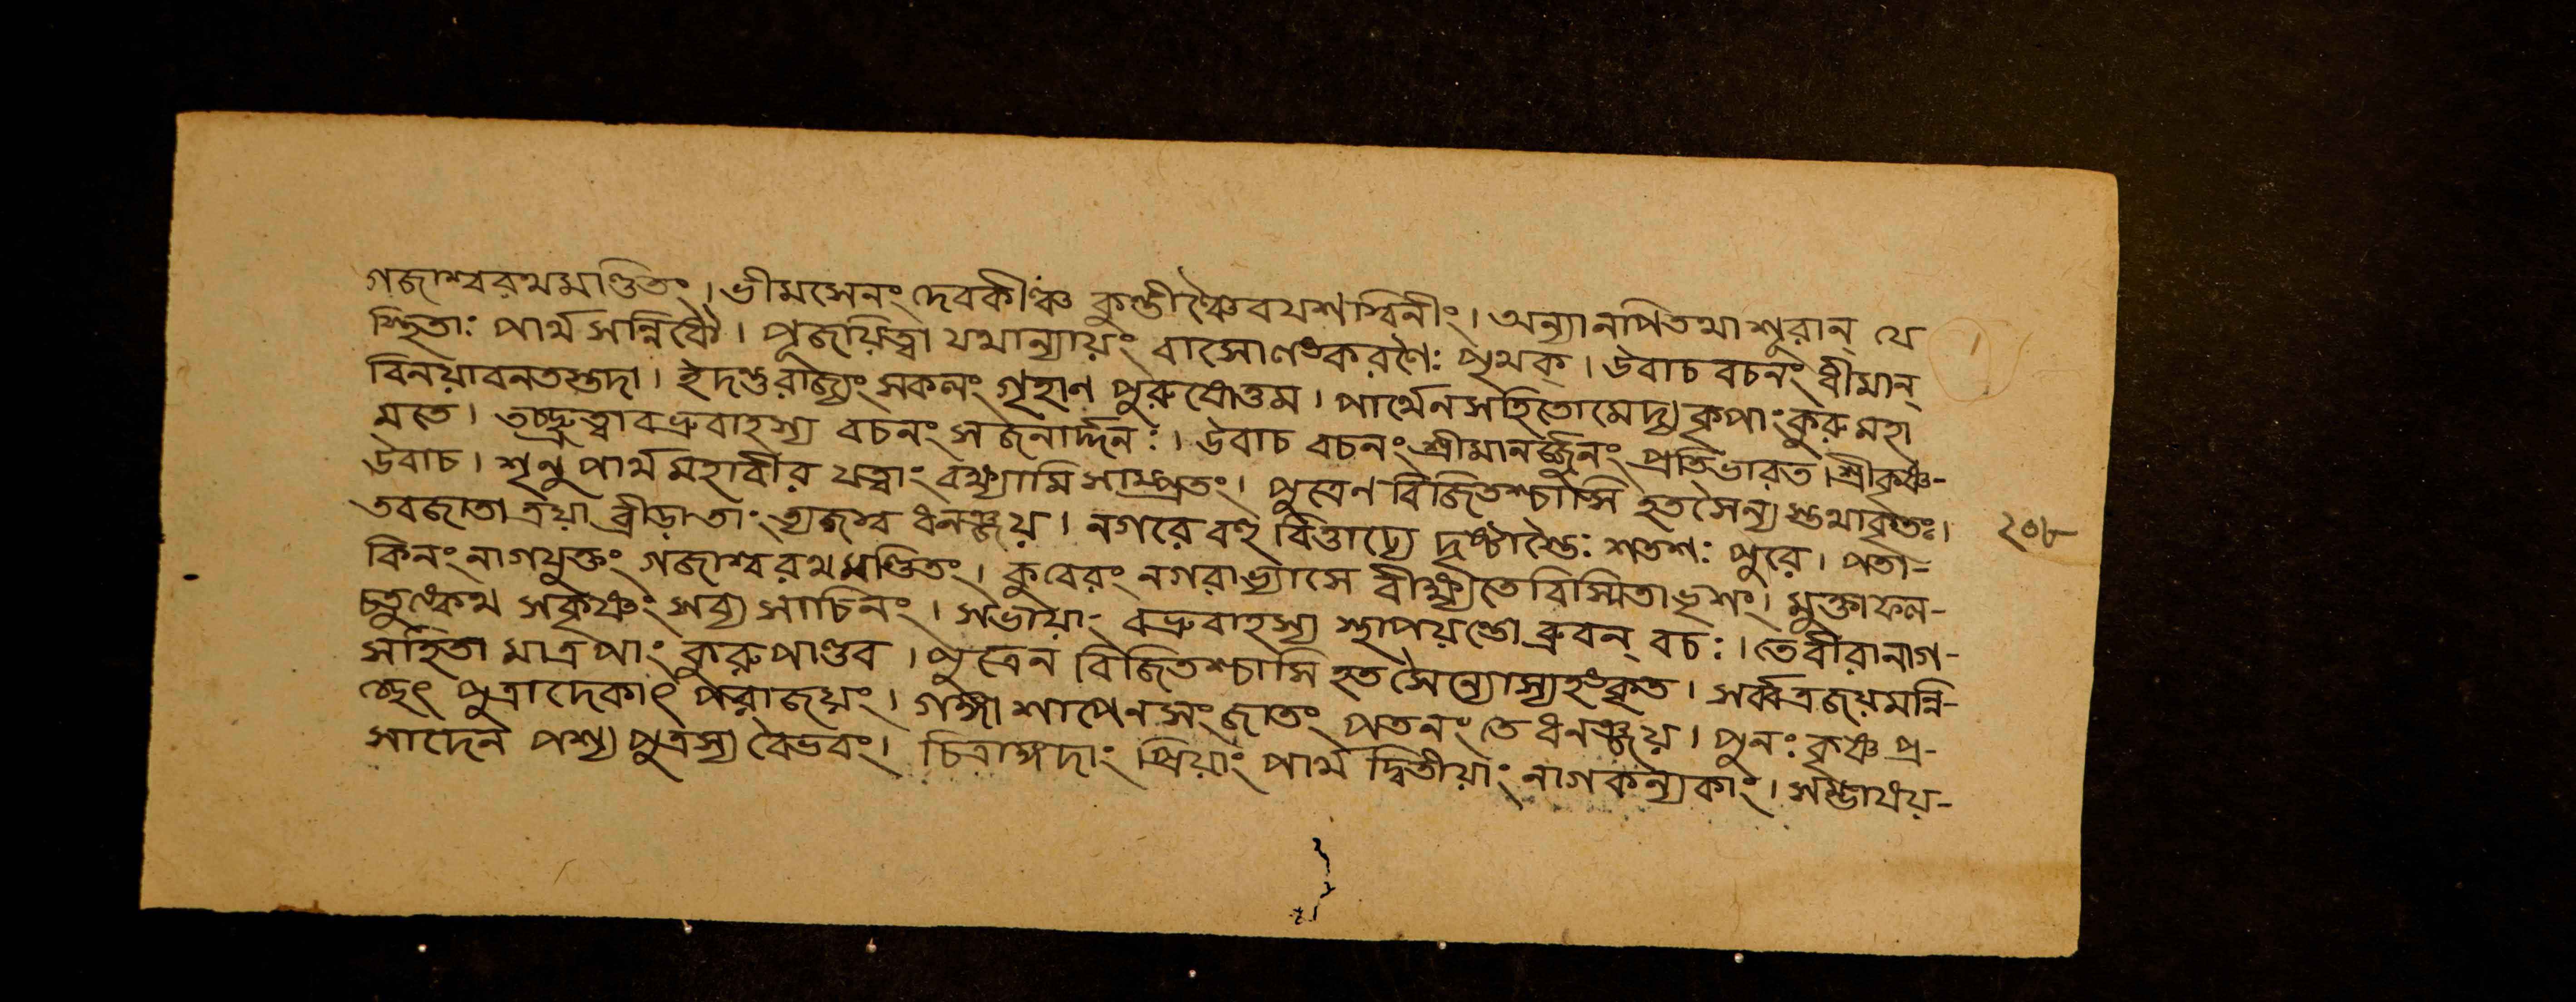 গজাশ্বরথমণ্ডিতং। ভীমসেনং দেবকীঞ্চ কুন্তীঞ্চৈবযশস্বিনীং। অন্যানপিতথাশূরান্ যে
স্থিতাঃ পার্থসন্নিধৌ। পূজয়িত্বা যথান্যায়ং বাসোলঙ্করণৈঃ পৃথক্। উবাচ বচনং ধীমান্
বিনয়াবনতস্তদা। ইদন্তুরাজ্যং সকলং গৃহাণ পুরুষোত্তম। পার্থেনসহিতোমেদ্য কৃপাং কুরু মহা
মতে। তচ্ছ্রুত্বাবভ্রুবাহস্য বচনং সজনার্দ্দনঃ। উবাচ বচনং শ্রীমানর্জ্জুনং প্রতিভারত। শ্রীকৃষ্ণ-
উবাচ। শৃনু পার্থমহাবীর যত্বাং বক্ষ্যামি সাম্প্রতং। পুত্রেণ বিজিতশ্চাসি হতসৈন্যস্তথাকৃতঃ।
তবজাতাত্রয়া ব্রীড়াতাং ত্যজস্ব ধনঞ্জয়। নগরে বহু বিত্তাঢ্যে দৃষ্টাস্তৈঃ শতশঃ পুরে। পতা-
কিনং নাগযুক্তং গজাশ্বরথমণ্ডিতং। কুবেরং নগরাভ্যাসে বীক্ষ্যতেবিস্মিতাভৃশং। মুক্তাফল-
চতুষ্কেথ সকৃষ্ণং সব্যসাচিনং। সভায়াং বভ্রুবাহস্য স্থাপয়ন্তো ব্রুবন্ বচঃ। তেবীরানাগ-
সহিতা মাত্রপাং কুরুপাণ্ডব। পুত্রেন বিজিতশ্চাসি হতসৈন্যোস্যহঙ্কৃত। সর্ব্বত্রজয়মন্বি-
চ্ছেৎ পুত্রাদেকাৎ পরাজয়ং। গঙ্গাশাপেনসংজাতং পতনং তে ধনঞ্জয়। পুনঃ কৃষ্ণ প্র-
সাদেন পশ্য পুত্রস্য বৈভবং। চিত্রাঙ্গদাং প্রিয়াং পার্থ দ্বিতীয়াং নাগকন্যকাং। সম্ভাষয়-
২০৮